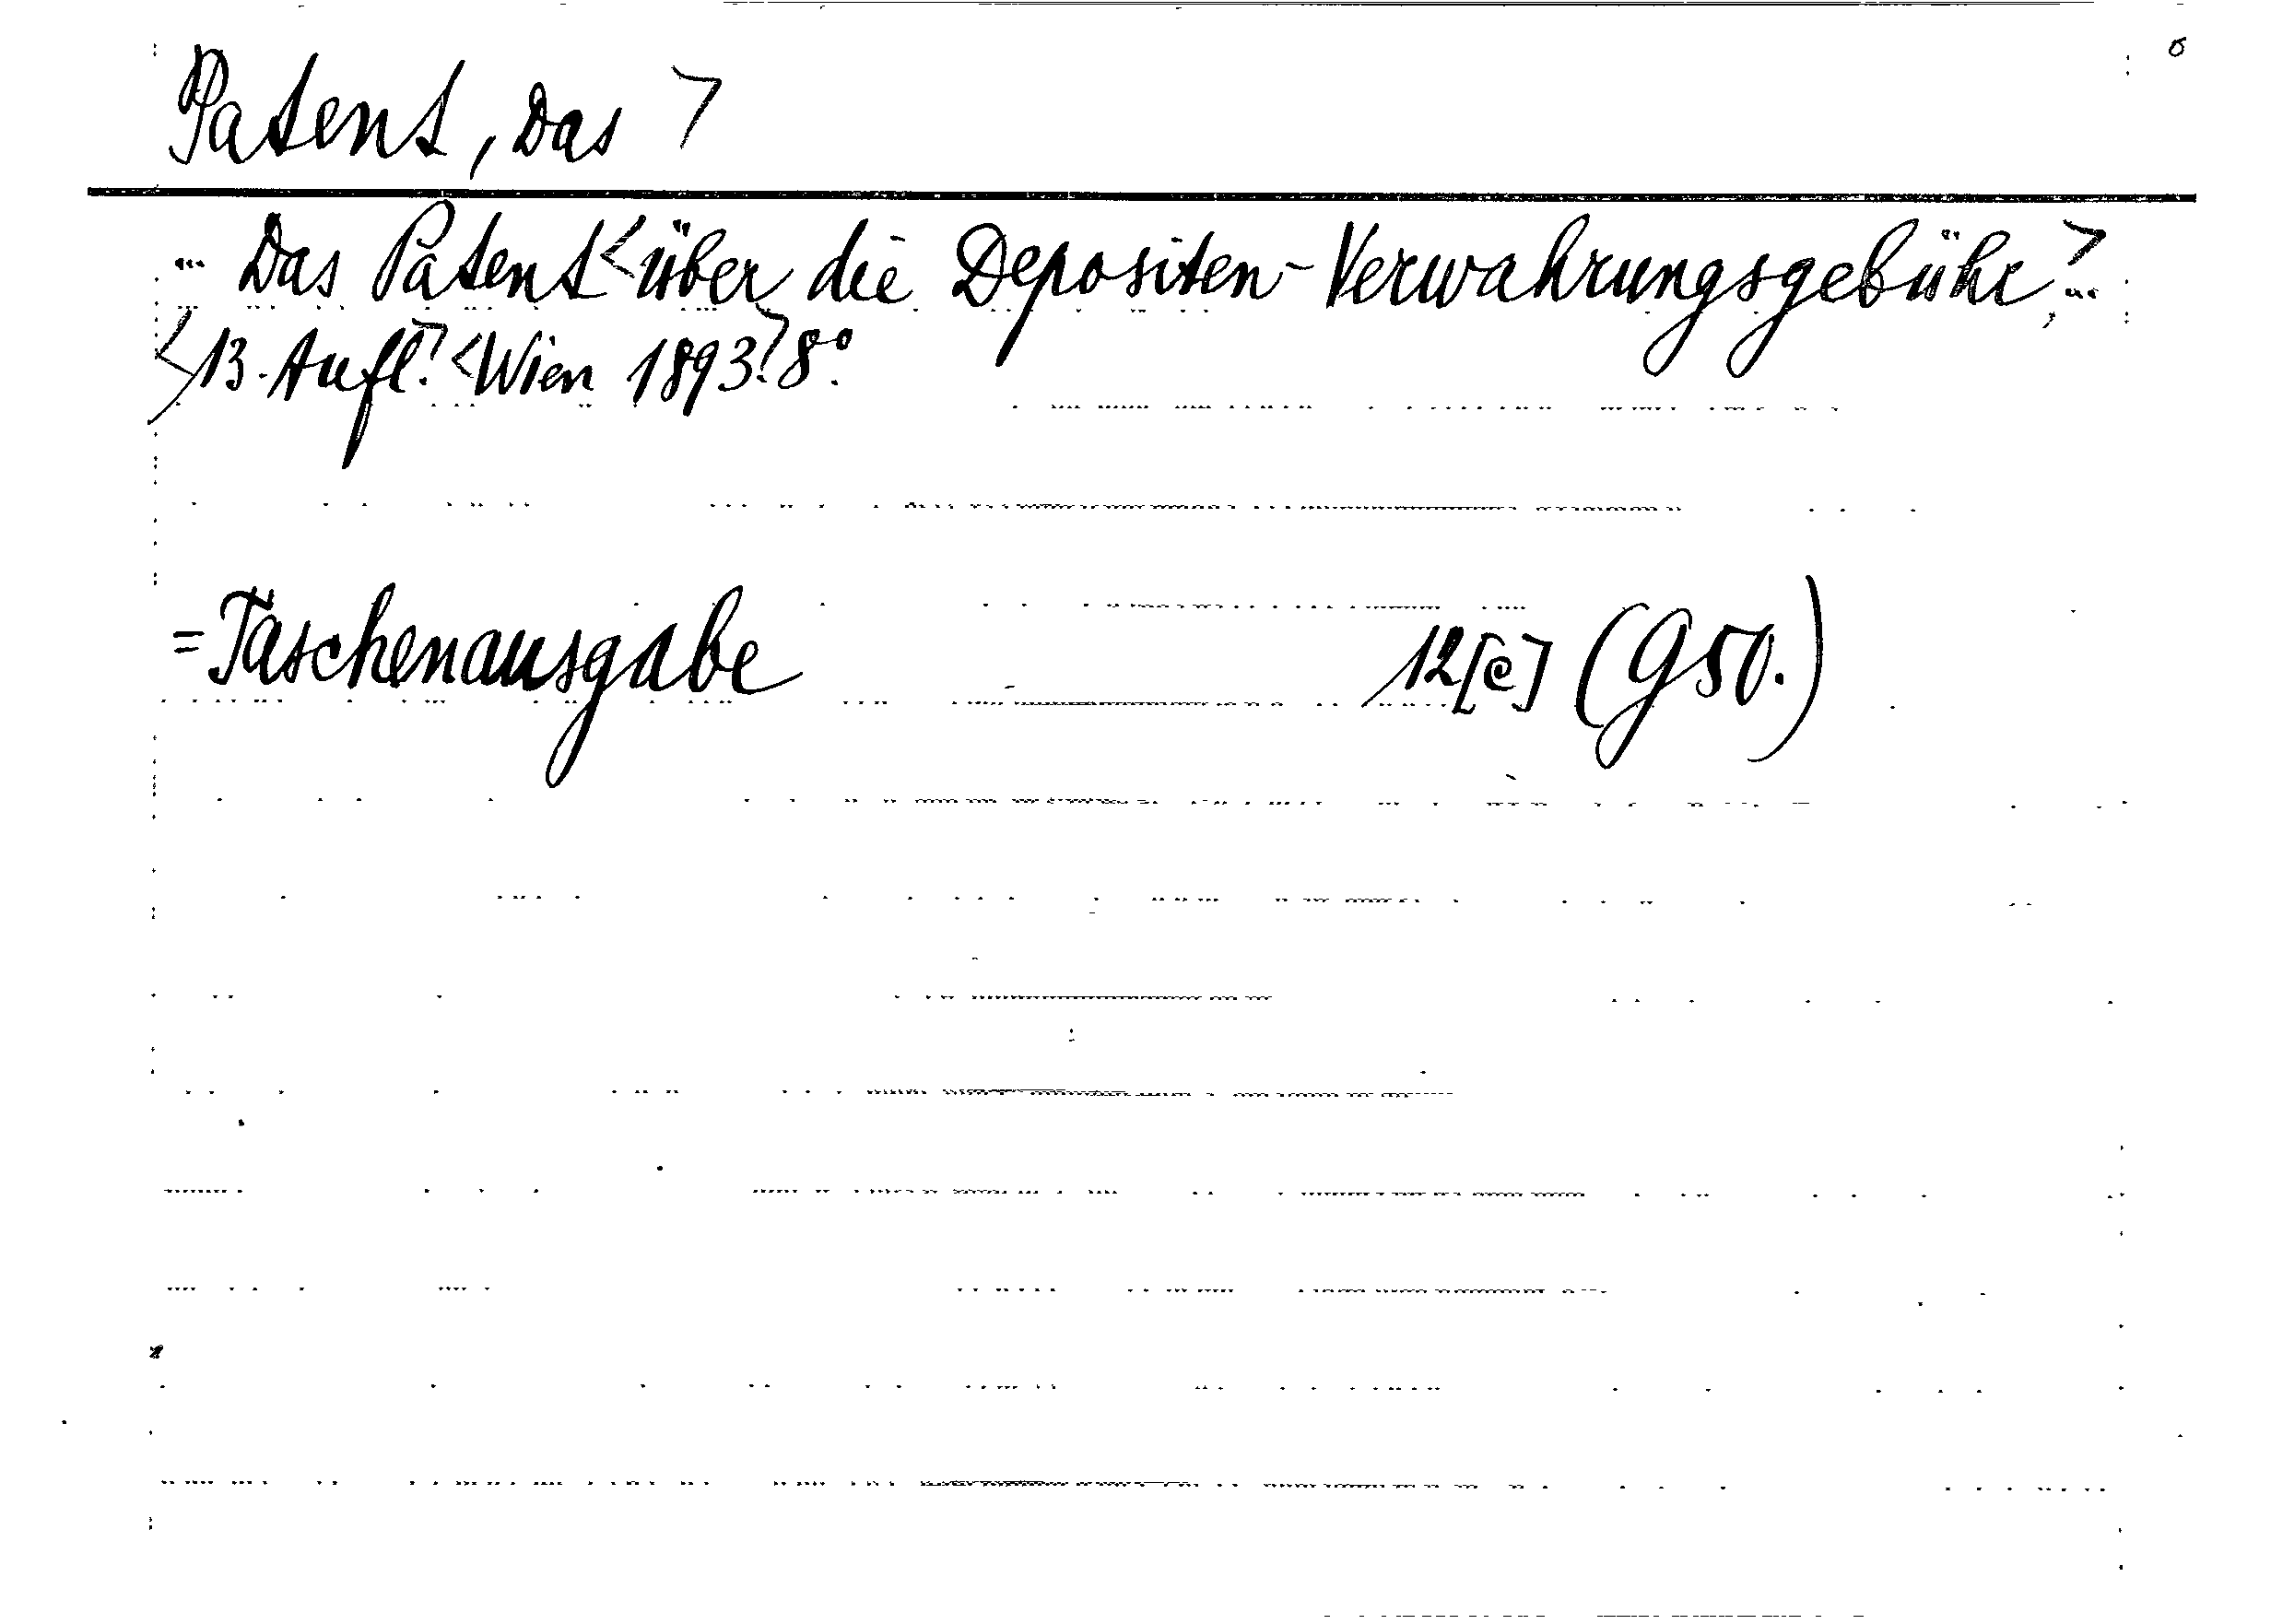 Patent, Das >
... Das Patent < über die Depositen-Verwahrungsgebühr, > ...
< 13. Aufl. > < Wien 1893. > 8°.
= Taschenausgabe 12[c] (G50.)